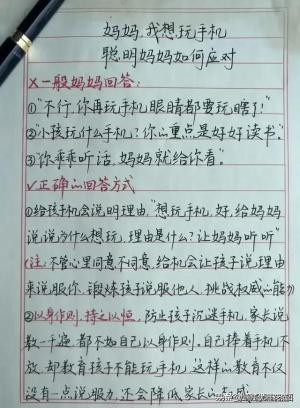 妈妈,我想玩手机
聪明妈妈如何应对
X一般妈妈回答:
①“不行,你再玩手机,眼睛都要玩瞎了!”
②“小孩玩什么手机?你的重点是好好读书。”
③“你乖乖听话,妈妈就给你看。”
✓正确的回答方式
①给孩子机会说明理由,“想玩手机,好,给妈妈
说说为什么想玩,理由是什么?让妈妈听听”
(注:不管心里同意不同意,给机会让孩子说理由
来说服你,锻炼孩子说服他人,挑战权威的能》
②以身作则,持之以恒,防止孩子沉迷手机,家长说
数一千遍,都不如自己以身作则,自己捧着手机不
放,却教育孩子不能玩手机,这样的教育不仅
没有一点说服力,还会降低家长的